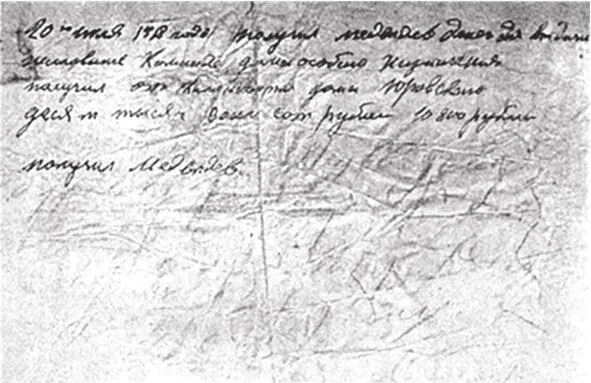 20го июля 1918 года получил медведев денег для выдачи
команде дома особого
получил от коменданта дома Юровского
десят тысяч восемсот рублей 10800 рублей
получил Медведев